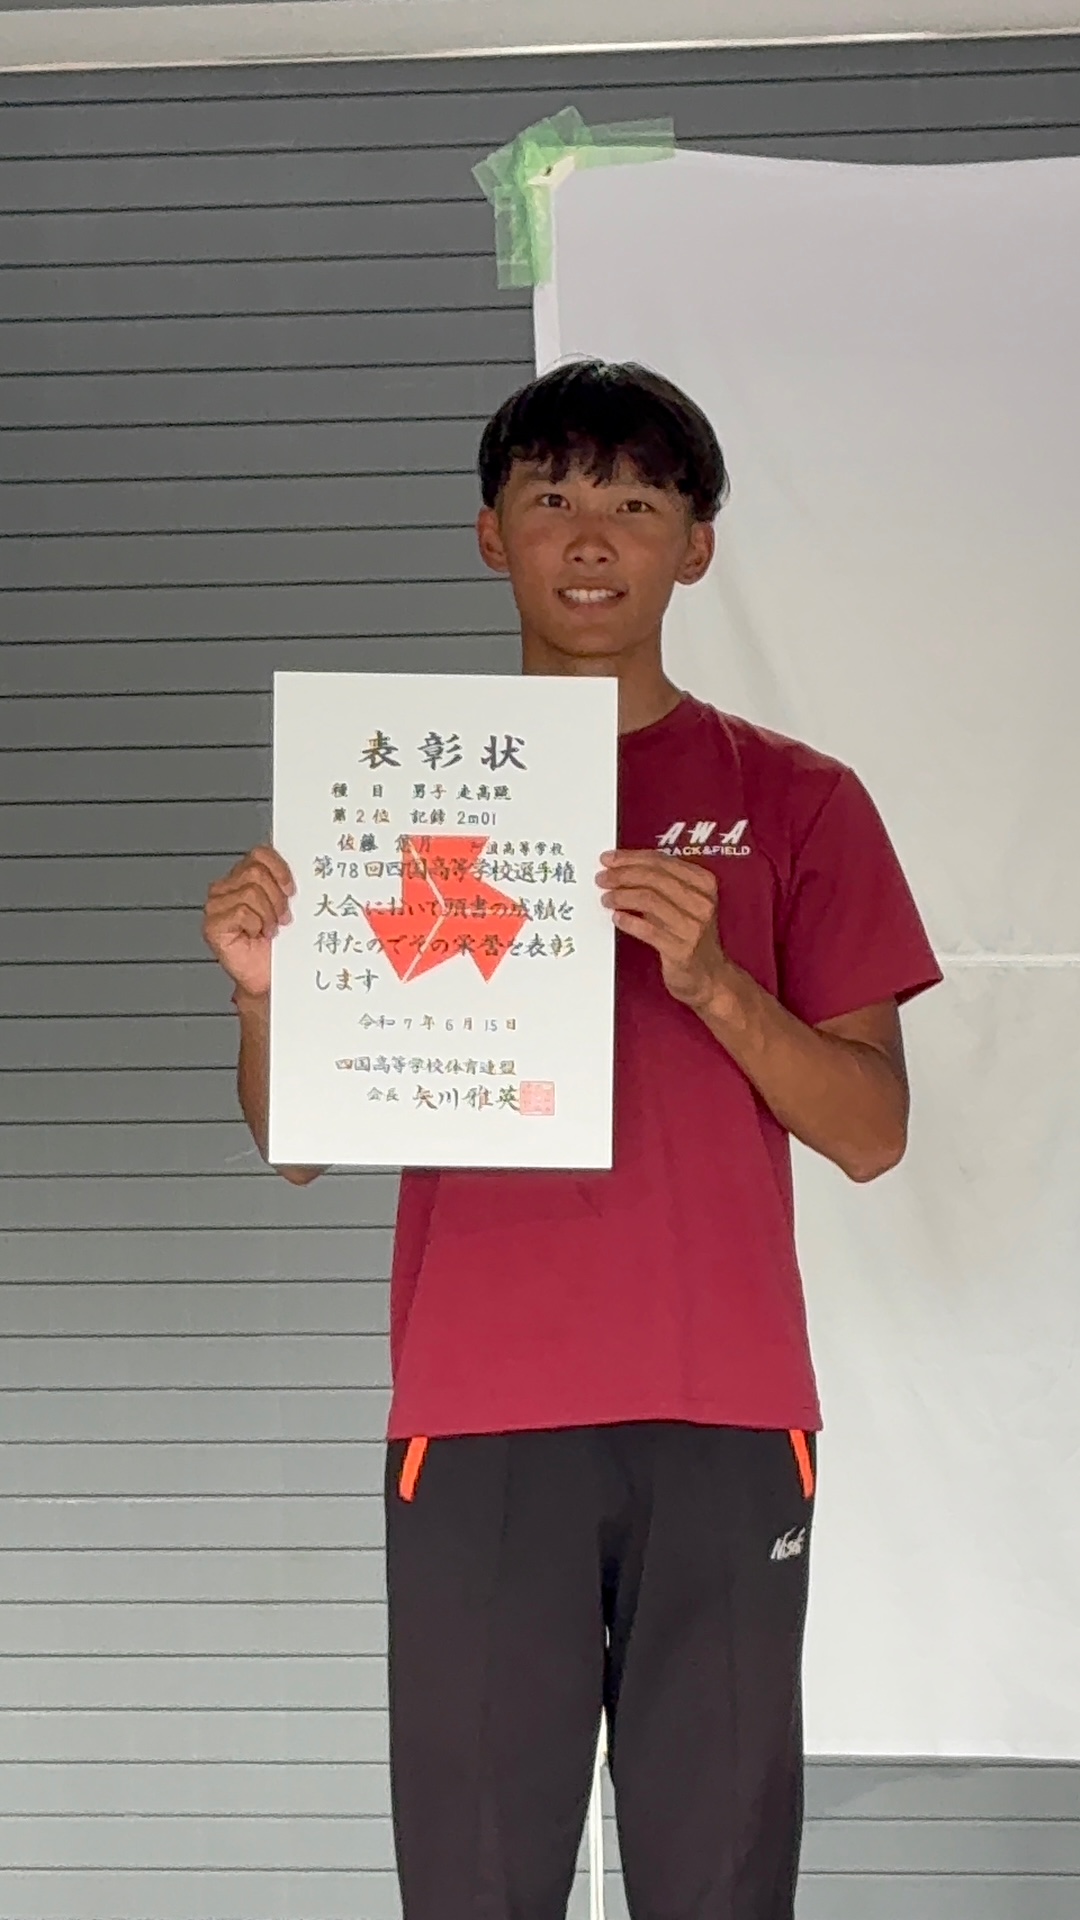 表彰状
種 目 男子 走高跳
第 2 位 記録 2m01
佐藤 月 波高等学校
第78回四国高等学校選手権
大会において頭書の成績を
得たのでその栄誉を表彰
します
令和 7 年 6 月 15 日
四国高等学校体育連盟
会長 矢川雅英
AWA
TRACK&FIELD